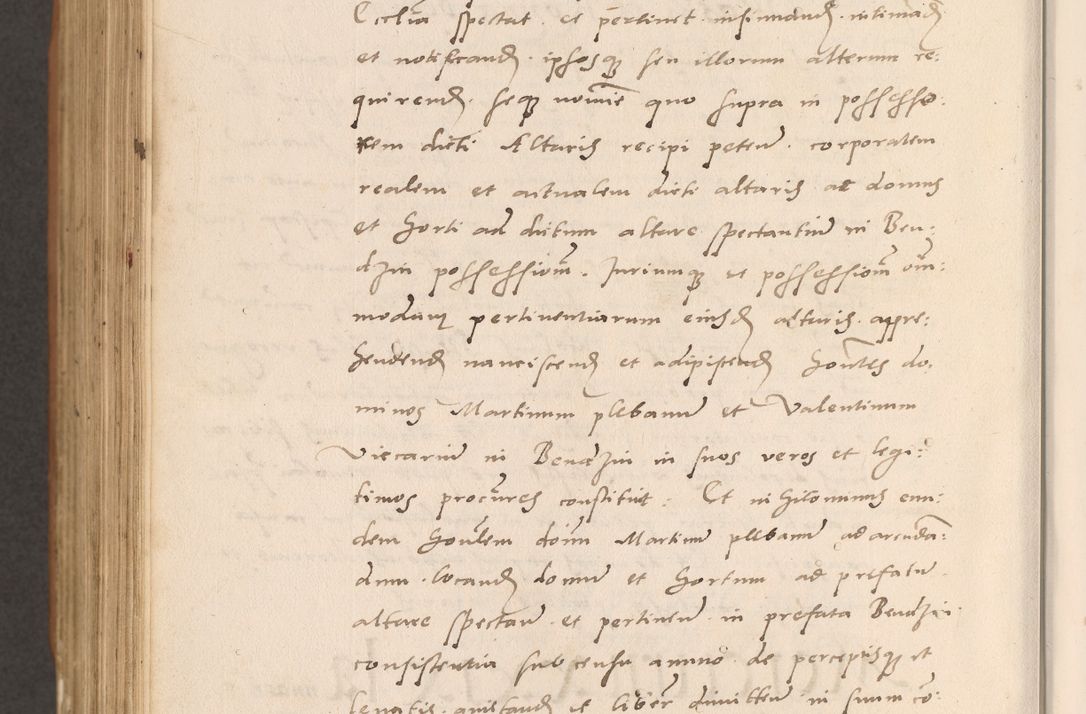 Ecclia spectat et pertinet insinuand intimad
et notificand ipsosq seu illorum alterum re:
quirend seq nomie quo supra in possesso:
rem dicti Altaris recipi peten corporalem
realem et actualem dicti altaris ac domus
et horti ad dictum altare spectantiu in Ben:
dzin possession Juriumq et possession om:
modamq pertinentiarum eiusd altaris appre:
hendend nanciscend et adipiscend Hontes do,
minos Martinum plebanu et Valentinum
Viccariu in Bendzin in suos veros et legi:
timos procures constituit: Et nihilominus eun:
dem honlem dom Martinu plebanu ad arenda:
dum locand domu et hortum ad prefatu
altare spectan et pertinen in prefata Bendzin
consistentia sub censu annuo de perceptisq et
levatis quitand et liber dimitten in suum co